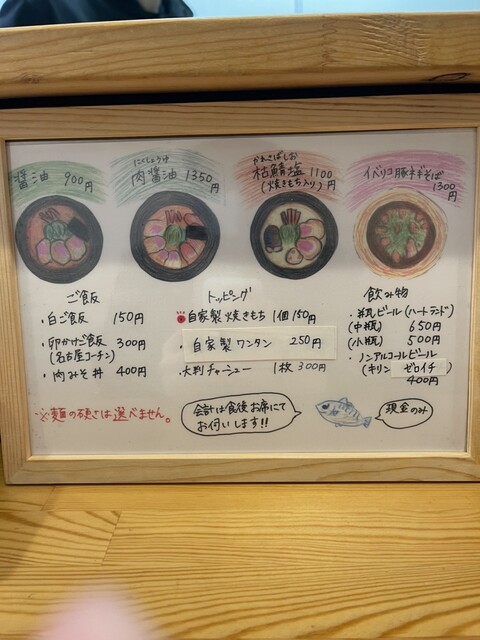 醤油 900円
にくしょうゆ
肉醤油 1350円
かれさばしお
枯鯖塩 1100円
(焼きもち入り)
イベリコ豚ネギそば
1300円
ご飯
・白ご飯 150円
・卵かけご飯 300円
(名古屋コーチン)
・肉みそ丼 400円
トッピング
自家製焼きもち 1個150円
・自家製ワンタン 250円
・大判チャーシュー 1枚300円
飲み物
・瓶ビール(ハートランド)
(中瓶) 650円
(小瓶) 500円
・ノンアルコールビール
(キリン ゼロイチ)
400円
※麺の硬さは選べません。
会計は食後お席にて
お伺いします!!
現金のみ